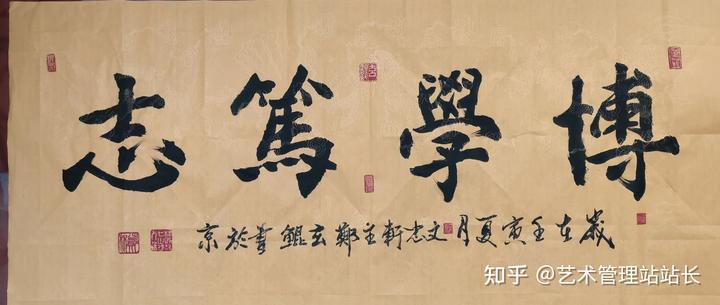 博學篤志
歲在壬寅夏月文忠軒主鄭玄鯤書於京
知乎 @艺术管理站站长